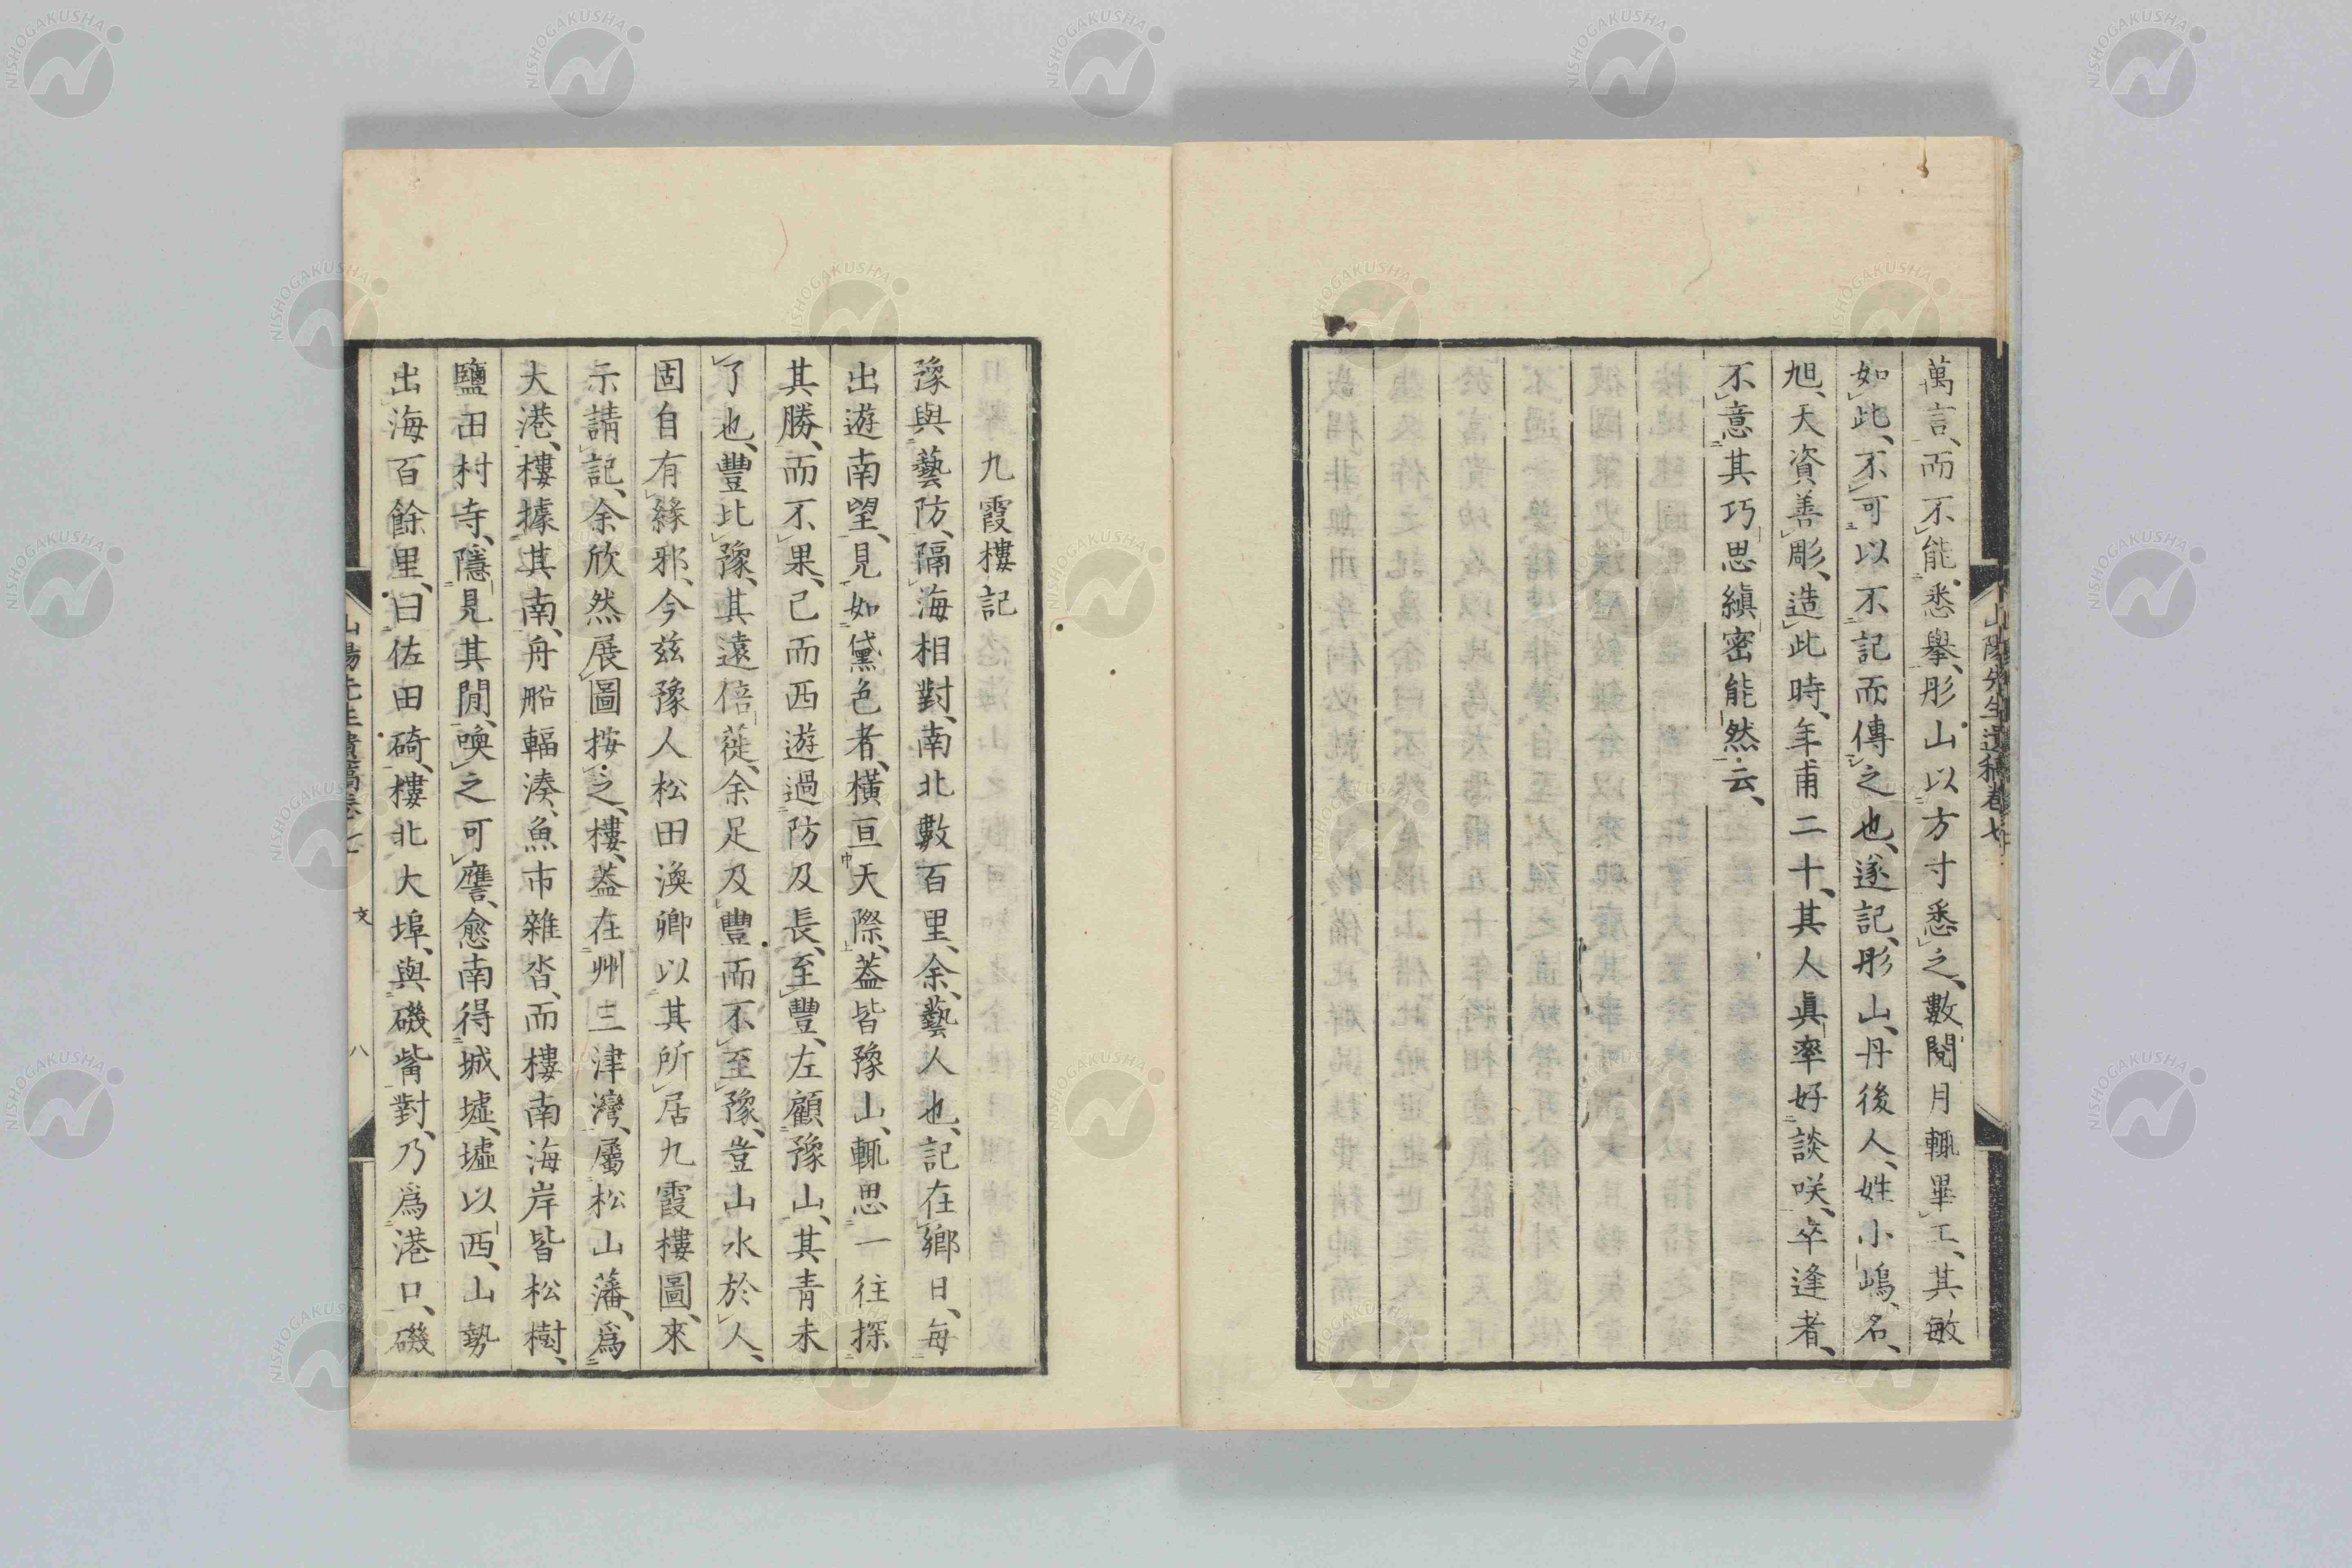 萬言、而不能悉擧、彤山以方寸悉之、數閱月輒畢工、其敏
如此、不可以不記而傳之也、遂記、彤山、丹後人、姓小嶋、名
旭、天資善彫、造此時、年甫二十、其人眞率好談咲、卒逢者、
不意其巧思縝密能然云、
山陽先生遺稿卷七
九霞樓記
豫與藝防、隔海相對、南北數百里、余藝人也、記在鄉日、每
出遊南望、見如黛色者、橫亘天際、蓋皆豫山、輒思一往探
其勝、而不果、已而西遊過防及長、至豐、左顧豫山、其靑未
了也、豐比豫、其遠倍蓰、余足及豐而不至豫、豈山水於人、
固自有緣邪、今玆豫人松田渙卿以其所居九霞樓圖、來
示請記、余欣然展圖按之、樓、蓋在州三津灣、屬松山藩、爲
大港、樓據其南、舟船輻湊、魚市雜沓、而樓南海岸皆松樹、
鹽田村寺、隱見其閒、喚之可譍、愈南得城墟、墟以西、山勢
出海百餘里、曰佐田碕、樓北大埠、與磯觜對、乃爲港口、磯
山陽先生遺稿卷七
文
八
NISHOGAKUSHA